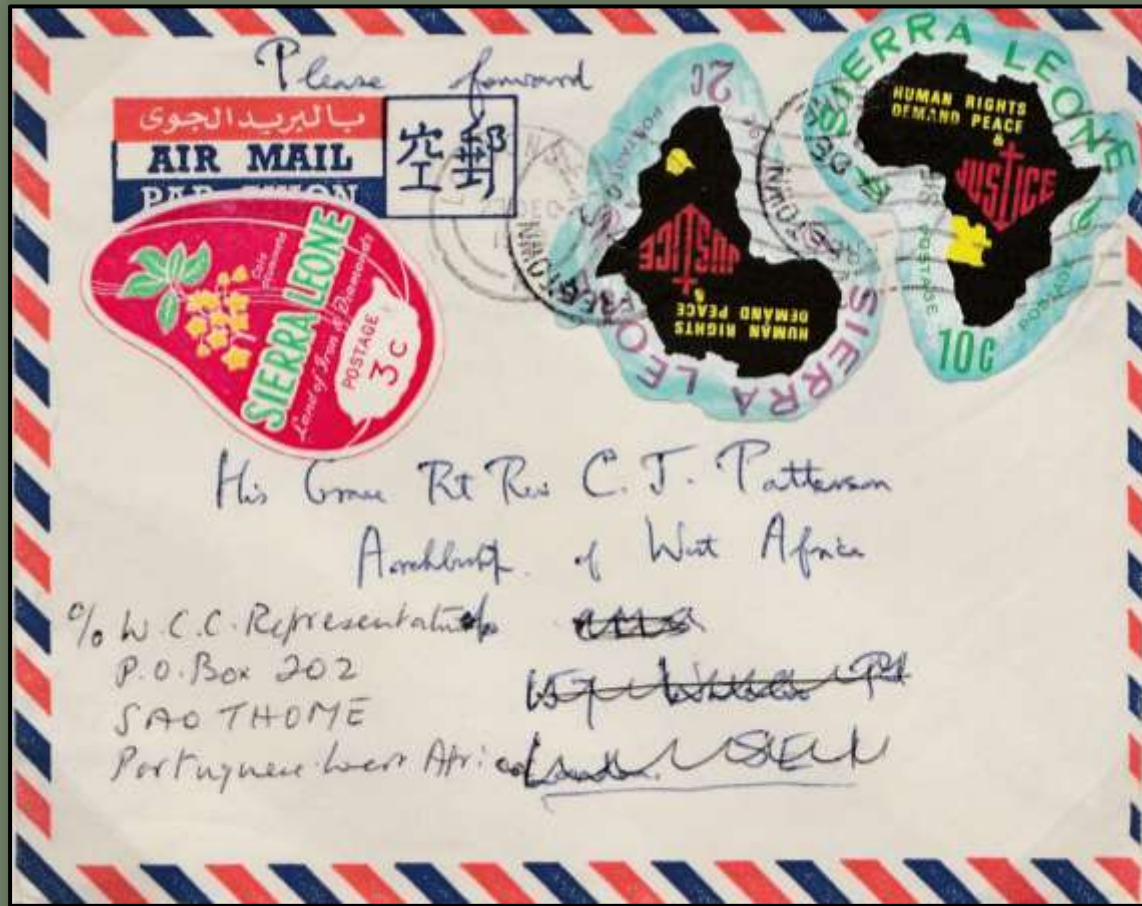 Please forward
بالبريد الجوى
AIR MAIL
PAR AVION
空郵
Cola
SIERRA LEONE
Land of Iron & Diamonds
POSTAGE
3 C
2C
POSTAGE
SIERRA LEONE
HUMAN RIGHTS
DEMAND PEACE
&
JUSTICE
FREETOWN
SIERRA LEONE
HUMAN RIGHTS
DEMAND PEACE
&
JUSTICE
POSTAGE
POSTAGE
10C
His Grace Rt Rev C. J. Patterson
Archbishop of West Africa
c/o W.C.C. Representative
P.O. Box 202
SAO THOME
Portuguese West Africa
London